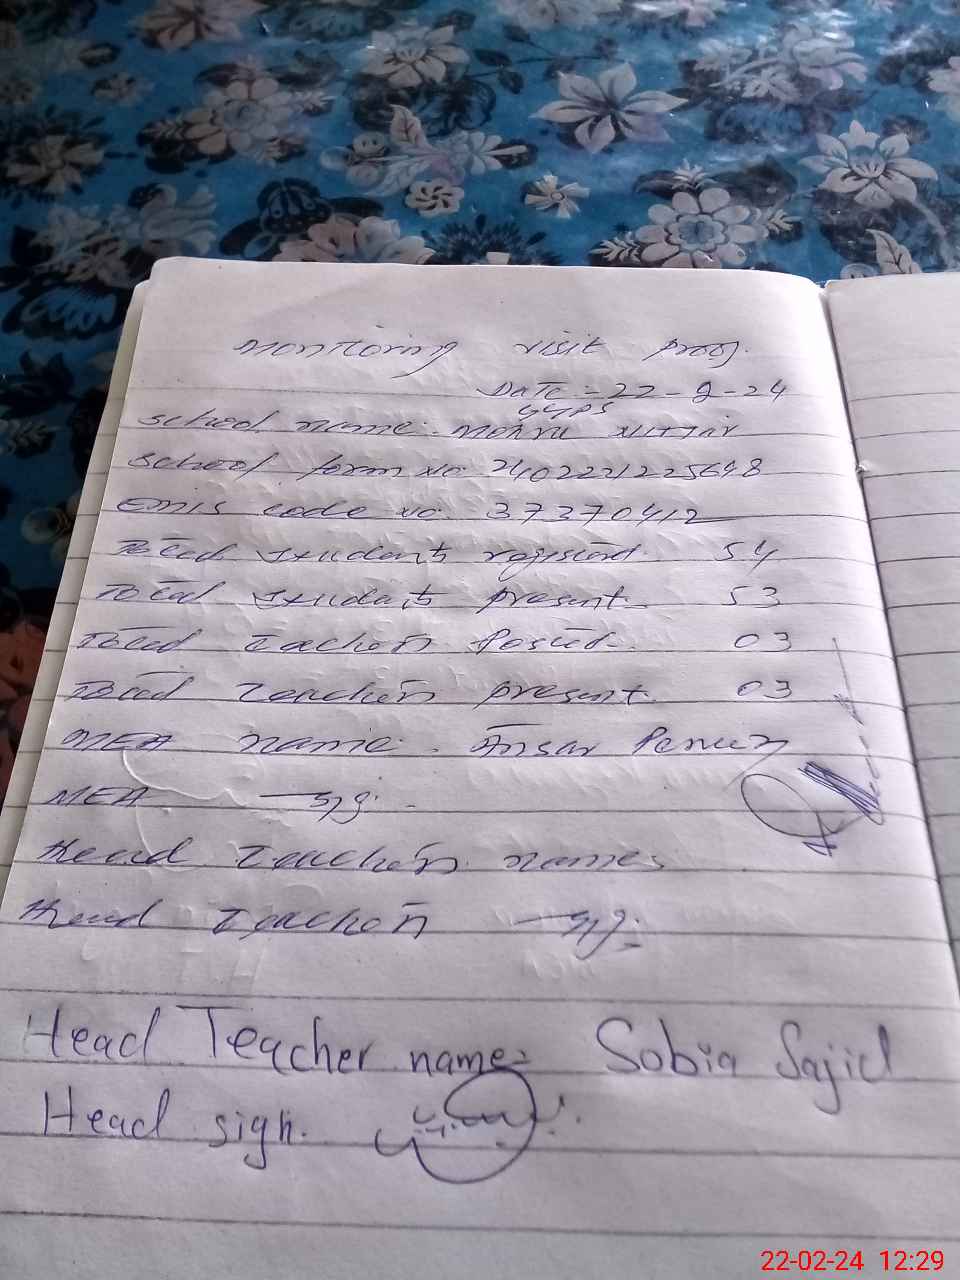 Monitoring visit proof.
Date = 22-2-24
GGPS
School name: Mohra
School form no 2402221225698
Emis code no. 37370412
Total students registered. 54
Total students present. 53
Total teachers Posted. 03
Total teachers present. 03
MEA name. Ansar Pervez
MEA sig.
Head teachers names
Head teachers sig.
Head Teacher name= Sobia Sajid
Head sign.
22-02-24 12:29